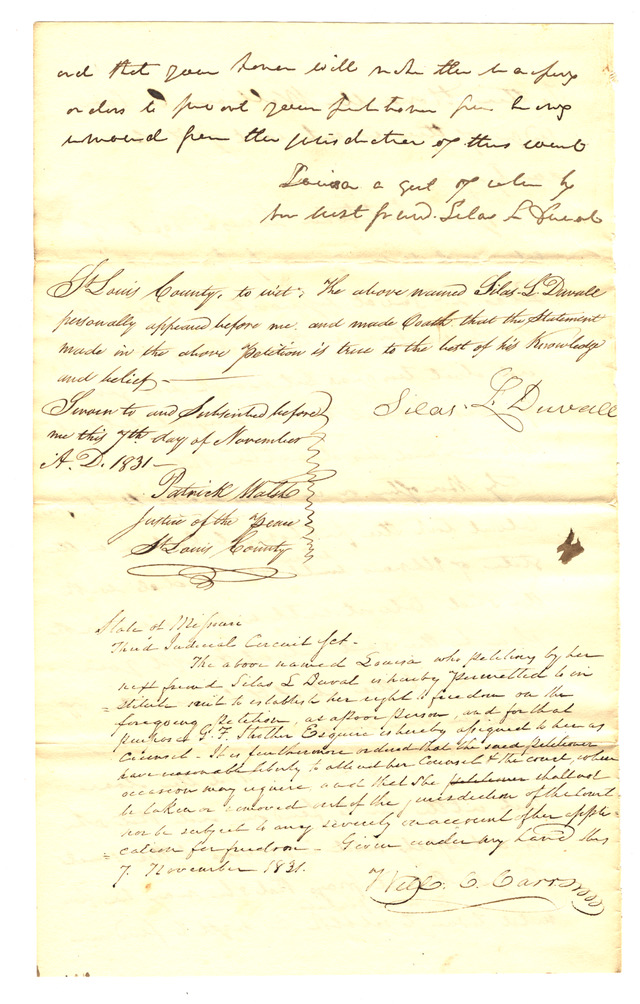 and that your honor will make the necessary
orders to prevent your petitioner from being
removed from the jurisdiction of this court
Louisa a girl of color by
her next friend. Silas L Duval
St Louis County, to wit; The above named Silas L Duvall
personally appeared before me, and made Oath that the Statement
made in the above Petition is true to the best of his Knowledge
and belief —
Sworn to and Subscribed before
me this 7th day of November
A. D. 1831 —
Silas. L. Duvall
Patrick Walsh
Justice of the Peace
St Louis County
State of Missouri
Third Judicial Circuit Sct.
The above named Louisa who petitions by her
next friend Silas L Duval is hereby permitted to in
=stitute suit to establish her right to freedom on the
foregoing petition, as a poor person, and for that
purpose G. F. Strother Esquire is hereby assigned to her as
Counsel. It is furthermore ordered that the said petitioner
have reasonable liberty to attend her Counsel & the court, when
occasion may require, and that she petitioner shall not
be taken or removed out of the jurisdiction of the Court
nor be subject to any severity on account of her appli=
=cation for freedom — Given under my hand this
7. November 1831.
Will. C. Carr